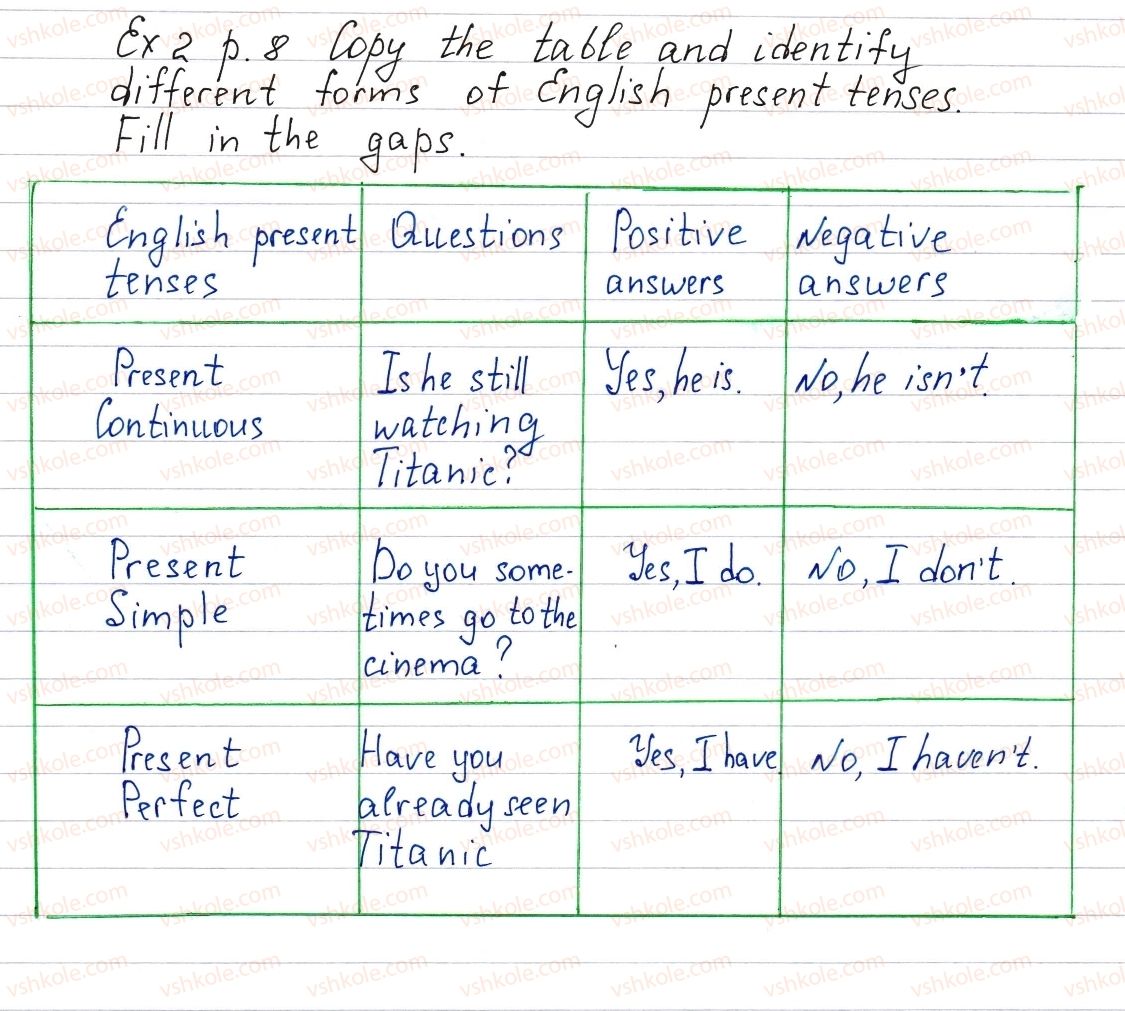 Ex 2 p. 8 Copy the table and identify
different forms of English present tenses.
Fill in the gaps.
English present
tenses
Questions
Positive
answers
Negative
answers
Present
Continuous
Is he still
watching
Titanic?
Yes, he is.
No, he isn't.
Present
Simple
Do you some-
times go to the
cinema?
Yes, I do.
No, I don't.
Present
Perfect
Have you
already seen
Titanic
Yes, I have
No, I haven't.
vshkole.com